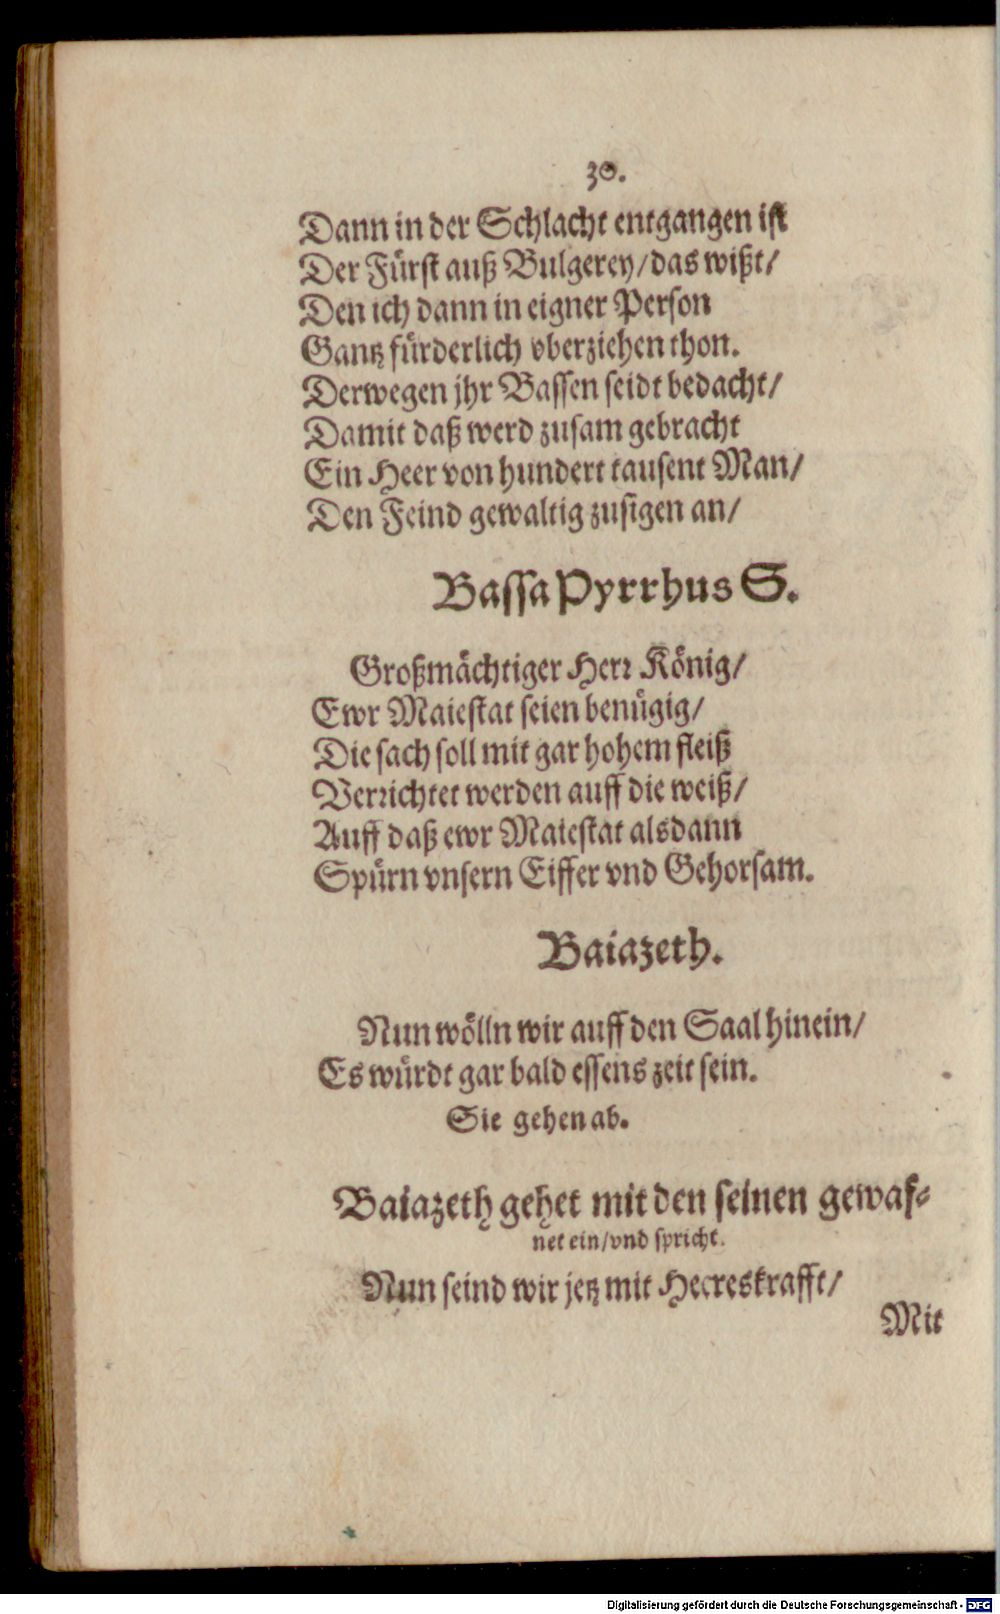 30.
Dann in der Schlacht entgangen ist
Der Fürst auß Bulgerey/das wißt/
Den ich dann in eigner Person
Gantz fürderlich vberziehen thon.
Derwegen jhr Bassen seidt bedacht/
Damit daß werd zusam gebracht
Ein Heer von hundert tausent Man/
Den Feind gewaltig zusigen an/
Bassa Pyrrhus S.
Großmächtiger Herr König/
Ewr Maiestat seien benügig/
Die sach soll mit gar hohem fleiß
Verrichtet werden auff die weiß/
Auff daß ewr Maiestat alsdann
Spürn vnsern Eiffer vnd Gehorsam.
Baiazeth.
Nun wölln wir auff den Saal hinein/
Es würdt gar bald essens zeit sein.
Sie gehen ab.
Baiazeth gehet mit den seinen gewaf-
net ein/vnd spricht.
Nun seind wir jetz mit Heereskrafft/
Mit
Digitalisierung gefördert durch die Deutsche Forschungsgemeinschaft - DFG